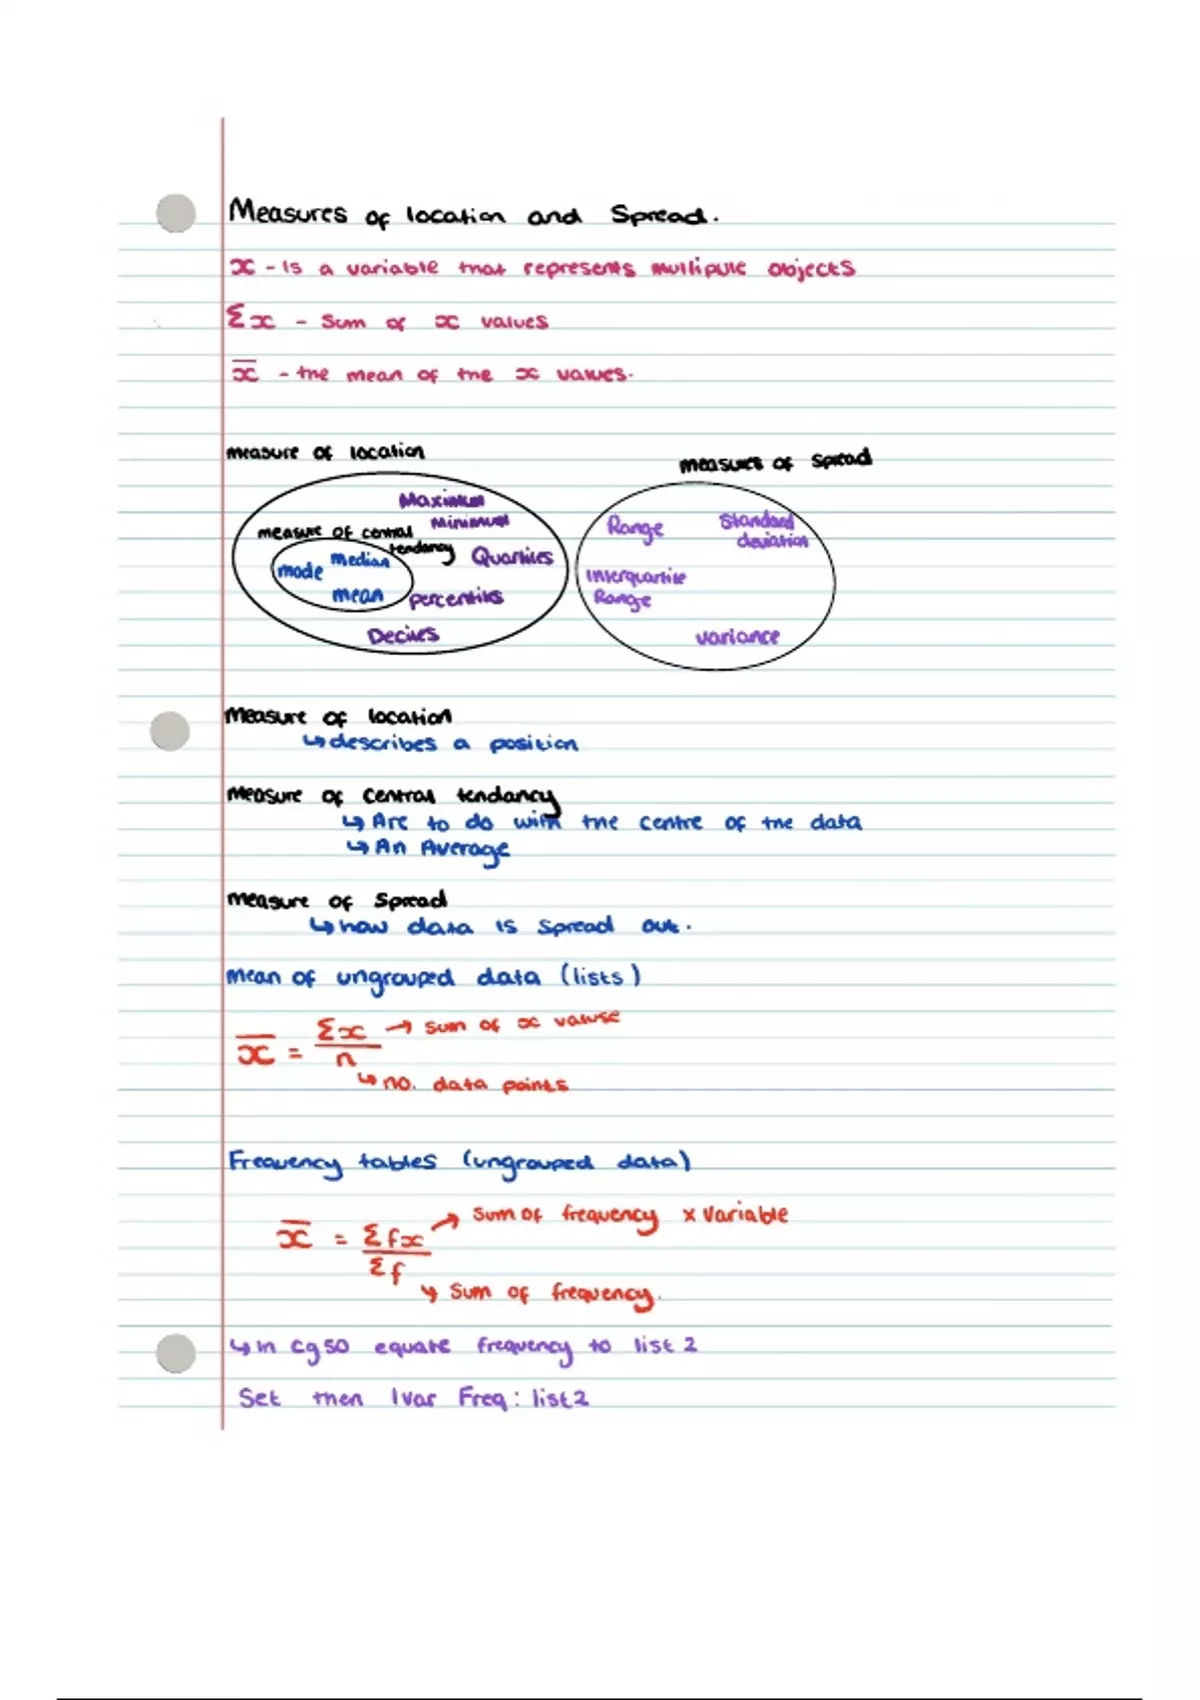 Measures of location and Spread.
x - Is a variable that represents multipule objects
Σx - Sum of x values
x̄ - the mean of the x values.
measure of location
measures of spread
Maximum
Minimum
measure of central
tendancy
mode
median
mean
Quartiles
percentiles
Deciles
Range
Standard
deviation
Interquartile
Range
variance
Measure of location
↳ describes a position
Measure of central tendancy
↳ Are to do with the centre of the data
↳ An Average
measure of Spread
↳ how data is spread out.
mean of ungrouped data (lists)
x̄ = Σx → sum of x value
n
↳ no. data points
Frequency tables (ungrouped data)
x̄ = Σfx → sum of frequency x variable
Σf
↳ sum of frequency.
↳ in cg50 equate frequency to list 2
Set then 1 var Freq: list2